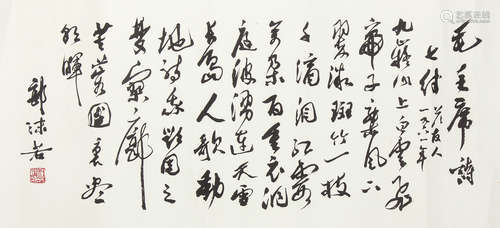 毛主席詩
七律 答友人
一九六一年
九嶷山上白雲飛
帝子乘風下
翠微斑竹一枝
千滴淚红霞
萬朵百重衣洞
庭波湧連天雪
長島人歌動
地詩我欲因之
夢寥廓
芙蓉國裏盡
朝暉
郭沫若